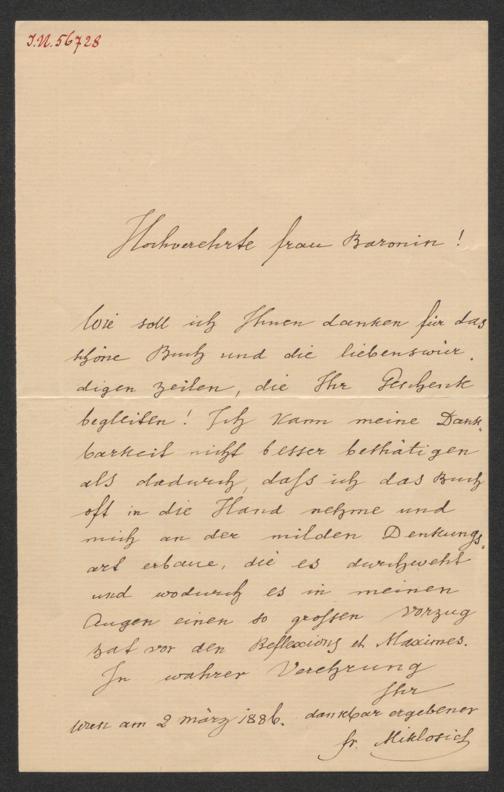 I.N. 56728
Hochverehrte Frau Baronin!
Wie soll ich Ihnen danken für das
schöne Buch und die liebenswür-
digen Zeilen, die Ihr Geschenk
begleiten! Ich kann meine Dank-
barkeit nicht besser bethätigen
als dadurch, daſs ich das Buch
oft in die Hand nehme und
mich an der milden Denkungs-
art erbaue, die es durchweht
und wodurch es in meinen
Augen einen so groſsen Vorzug
hat vor den Reflexions et Maximes.
In wahrer Verehrung
Ihr
Wien am 2 März 1886. dankbar ergebener
Fr. Miklosich